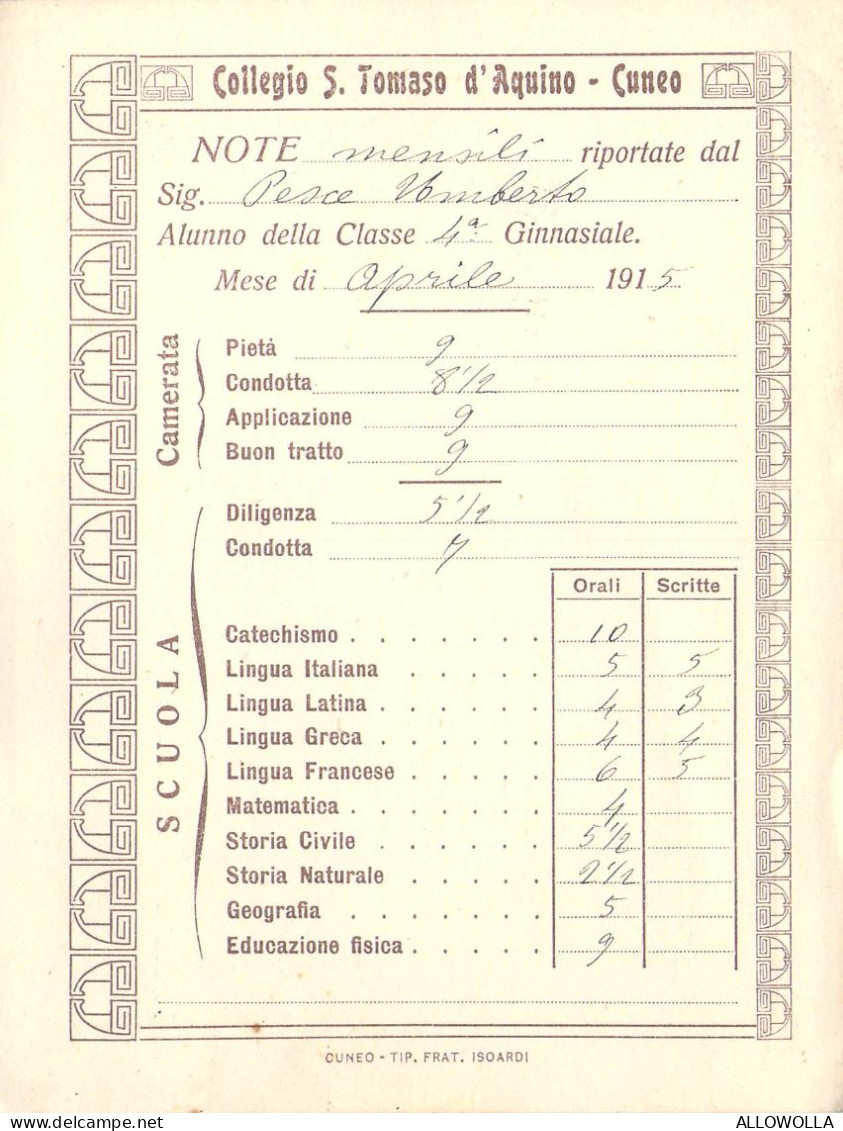 Collegio S. Tomaso d'Aquino - Cuneo
NOTE mensili riportate dal
Sig. Pesce Umberto
Alunno della Classe 4ª Ginnasiale.
Mese di Aprile 1915
Camerata
Pietà 9
Condotta 8 1/2
Applicazione 9
Buon tratto 9
SCUOLA
Diligenza 5 1/2
Condotta 7
Orali Scritte
Catechismo . . . . . . . 10
Lingua Italiana . . . . . 5 5
Lingua Latina . . . . . . 4 3
Lingua Greca . . . . . . 4 4
Lingua Francese . . . . . 6 5
Matematica . . . . . . . 4
Storia Civile . . . . . . 5 1/2
Storia Naturale . . . . . 2 1/2
Geografia . . . . . . . 5
Educazione fisica . . . . . 9
CUNEO - TIP. FRAT. ISOARDI
ALLOWOLLA